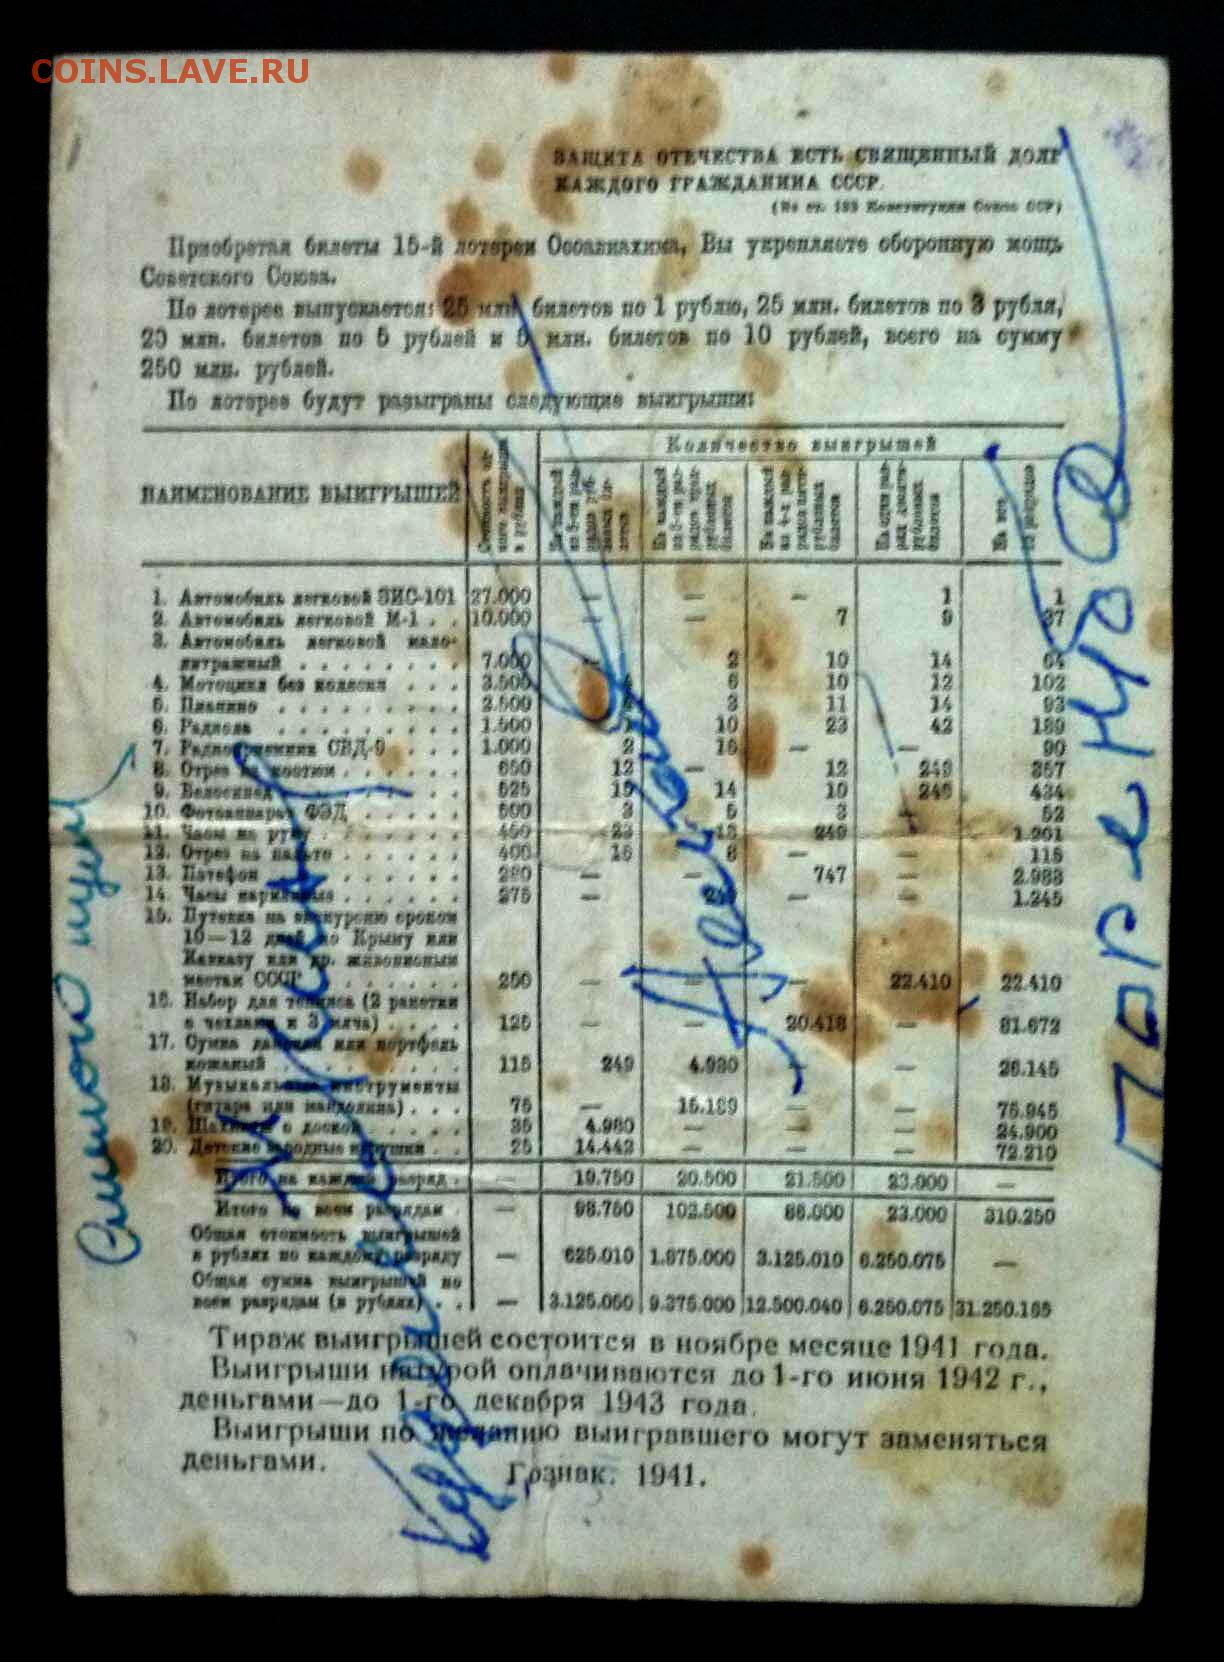 COINS.LAVE.RU
ЗАЩИТА ОТЕЧЕСТВА ЕСТЬ СВЯЩЕННЫЙ ДОЛГ
КАЖДОГО ГРАЖДАНИНА СССР.
(Из ст. 133 Конституции Союза ССР)
Приобретая билеты 15-й лотереи Осоавиахима, Вы укрепляете оборонную мощь
Советского Союза.
По лотерее выпускается: 25 млн. билетов по 1 рублю, 25 млн. билетов по 3 рубля,
20 млн. билетов по 5 рублей и 5 млн. билетов по 10 рублей, всего на сумму
250 млн. рублей.
По лотерее будут разыграны следующие выигрыши:
НАИМЕНОВАНИЕ ВЫИГРЫШЕЙ
Количество выигрышей
1. Автомобиль легковой ЗИС-101 27.000 — — — 1 1
2. Автомобиль легковой М-1 . . 10.000 — — 7 9 37
3. Автомобиль легковой мало-
литражный . . . . . . . . 7.000 2 10 14 64
4. Мотоцикл без коляски . . . 3.500 6 10 12 102
5. Пианино . . . . . . . . . 2.500 3 11 14 93
6. Радиола . . . . . . . . . 1.500 1 10 23 42 189
7. Радиоприемник СВД-9 . . . 1.000 2 16 — — 90
8. Отрез на костюм . . . . . . 650 12 — 12 249 357
9. Велосипед . . . . . . . . 525 15 14 10 249 434
10. Фотоаппарат ФЭД . . . . . 500 3 5 3 52
11. Часы на руку . . . . . . . 450 23 249 — 1.201
12. Отрез на пальто . . . . . . 400 15 8 — — 115
13. Патефон . . . . . . . . . 280 — — 747 — 2.988
14. Часы карманные . . . . . . 275 — 249 — — 1.245
15. Путевка на экскурсию сроком
10—12 дней по Крыму или
Кавказу или др. живописным
местам СССР . . . . . . 250 — — — 22.410 22.410
16. Набор для тенниса (2 ракетки
в чехлах и 3 мяча) . . . . 125 — — 20.418 — 81.672
17. Сумка дамская или портфель
кожаный . . . . . . . . 115 249 4.980 — 26.145
18. Музыкальные инструменты
(гитара или мандолина) . . . 75 — 15.189 — — 75.945
19. Шахматы с доской . . . . . 35 4.980 — — — 24.900
20. Детские заводные игрушки . . 25 14.442 — — — 72.210
Итого на каждый разряд . — 19.750 20.500 21.500 23.000 —
Итого по всем разрядам . — 98.750 102.500 86.000 23.000 310.250
Общая стоимость выигрышей
в рублях по каждому разряду — 625.010 1.875.000 3.125.010 6.250.075 —
Общая сумма выигрышей по
всем разрядам (в рублях) . . — 3.125.050 9.375.000 12.500.040 6.250.075 31.250.165
Тираж выигрышей состоится в ноябре месяце 1941 года.
Выигрыши натурой оплачиваются до 1-го июня 1942 г.,
деньгами—до 1-го декабря 1943 года.
Выигрыши по желанию выигравшего могут заменяться
деньгами.
Гознак. 1941.